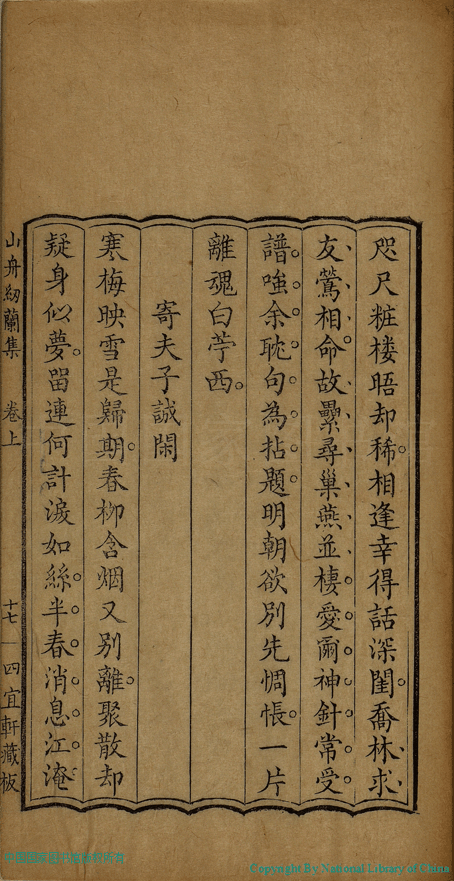 咫尺粧楼晤却稀相逢幸得話深閨喬林求
友鶯相命故壘尋巢燕並棲愛爾神針常受
譜嗤余耽句為拈題明朝欲別先惆悵一片
離魂白苧西
寄夫子誠閑
寒梅映雪是歸期春柳含烟又別離聚散却
疑身似夢畱連何計淚如絲半春消息江淹
山舟紉蘭集 卷上 十七 四宜軒藏板
Copyright By National Library of China